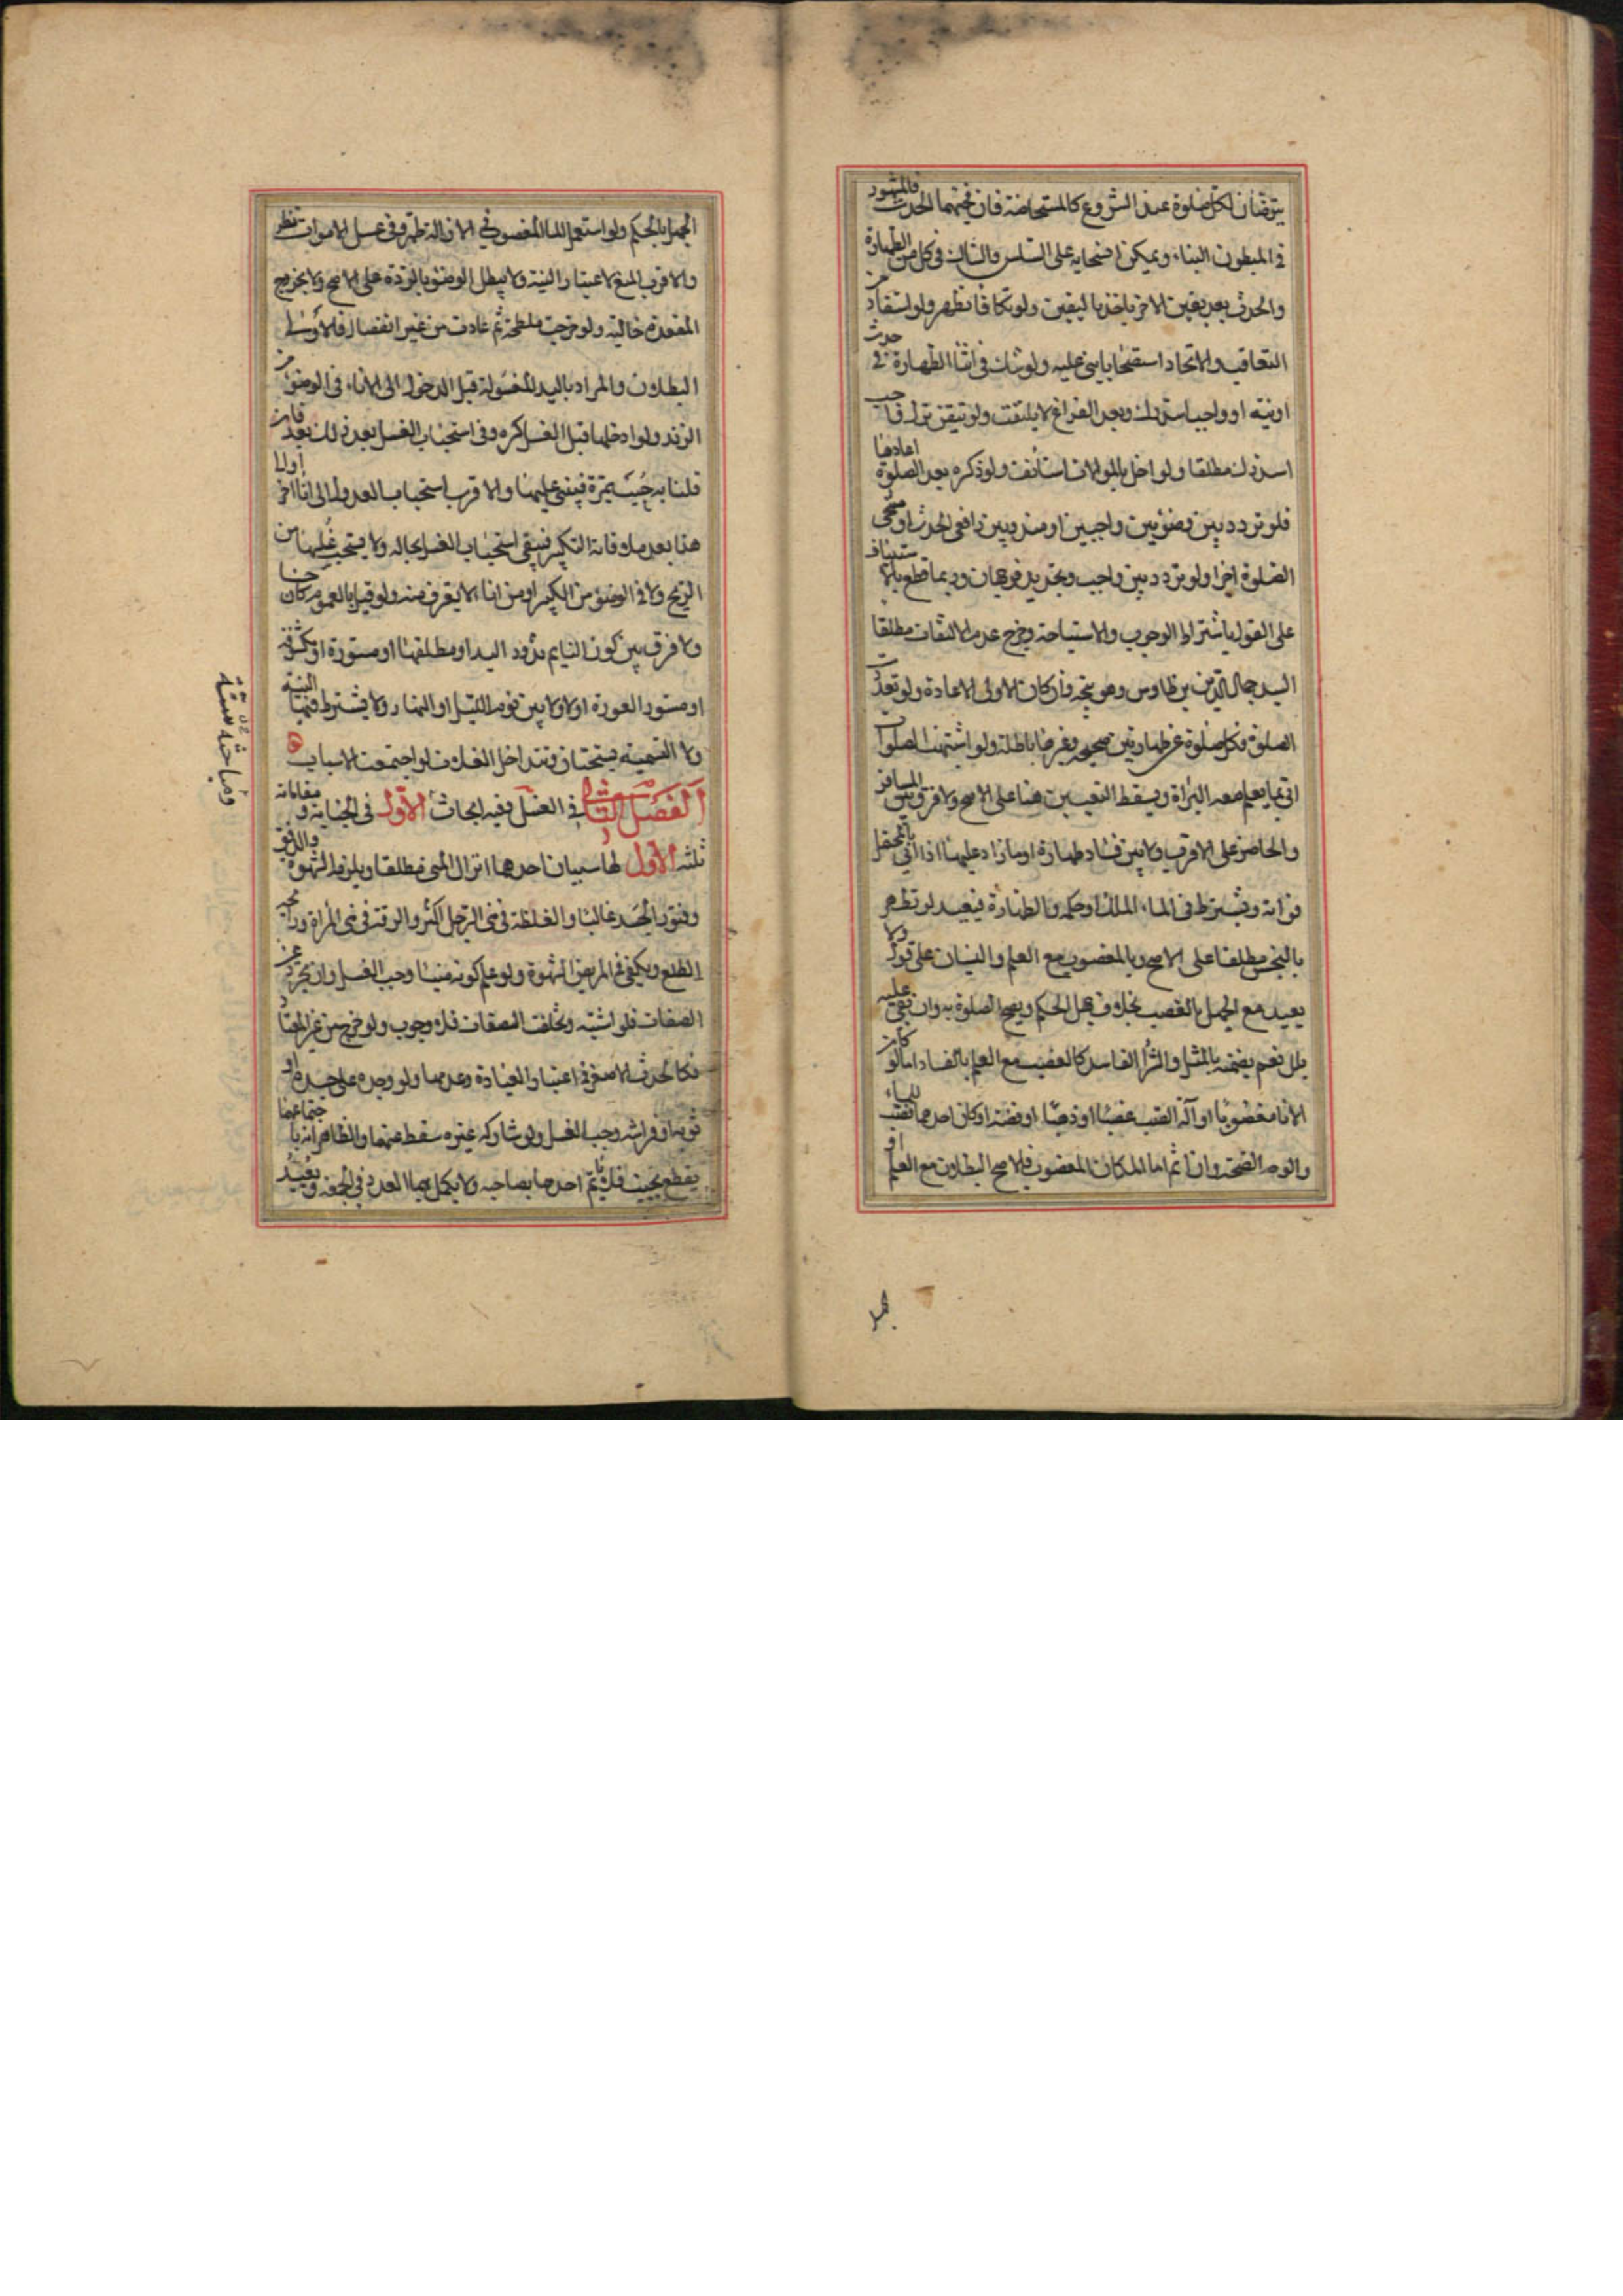 يتوضئان لكل صلوة عند الشروع كالمستحاضة فان فجئهما الحدث فالمشهور
في المبطون البناء ويمكن انسحابه على السلس والشاك في كل من الطهارة
والحدث بعد يقين الاخر ياخذ باليقين ولو تكافا تطهر ولو استفاد من
التعاقب والاتحاد استصحابا بنى عليه ولو شك في اثناء الطهارة في حدث
او نية او واجب استدرك وبعد الفراغ لا يلتفت ولو تيقن ترك واجب
استدرك مطلقا ولو اخل بالموالاة استأنف ولو ذكره بعد الصلوة اعادها
فلو تردد بين وضوئين واجبين او مندوبين رافعي الحدث او مبيحي
الصلوة اجزا ولو تردد بين واجب وتجديد فوجهان وربما قطع بالاستيناف
على القول باشتراط الوجوب والاستباحة وخرج عدم الالتفات مطلقا
السيد جمال الدين بن طاوس وهو متجه وان كان الاولى الاعادة ولو تعددت
الصلوة فكل صلوة عن طهارتين صحيحة وغيرها باطلة ولو اشتبهت الصلوات
اتى بما يعلم معه البراة ويسقط التعيين هنا على الاصح ولا فرق بين المسافر
والحاضر على الاقرب ولا بين فساد طهارة او ما زاد عليها اذا اتى بالمحتمل
فواته ويشترط في الماء الملك او حكمه والطهارة فيعيد لو تطهر
بالنجس مطلقا على الاصح وبالمغصوب مع العلم والنسيان على قول ولا
يعيد مع الجهل بالغصب بخلاف جهل الحكم ويصح الصلوة به وان بقي عليه
بلل نعم يضمنه بالمثل والشرا الفاسد كالغصب مع العلم بالفساد اما لو كان
الانا مغصوبا او آلة الصب غصبا او ذهبا او فضة او كان احدهما مصب للماء
والوجه الصحة وان اثم اما المكان المغصوب فالاصح البطلان مع العلم او
الجهل بالحكم ولو استعمل الماء المغصوب في الازالة طهر وفي غسل الاموات نظر
والاقرب المنع لاعتبار النية ولا يبطل الوضوء بالردة على الاصح ولا بخروج
المقعدة خالية ولو خرجت ملطخة ثم عادت من غير انفصال فالاوسط
البطلان والمراد باليد المغسولة قبل الدخول الى الاناء في الوضوء من
الزند ولو ادخلها قبل الغسل كره وفي استحباب الغسل بعد ذلك بعد فان
قلنا به حسبت بمرة فيبني عليها والاقرب استحباب العدول الى انا اخر اولا
هذا بعد ملاقاة الكثير فيبقى استحباب الغسل بحاله ولا يستحب غسلها من
الريح ولا في الوضوء من الكثير او من انا لا يغرف منه ولو قيل بالعموم كان حسنا
ولا فرق بين كون النايم مشدود اليد او مطلقها او مستورة او مكشوفة
او مستور العورة او لا ولا بين نوم الليل او النهار ولا يشترط فيها النية
ولا التسمية يستحبان وتتداخل الغسلات لو اجتمعت الاسباب
الفصل الثاني في الغسل وفيه ابحاث الاول في الجنابة ومقاماته
ثلثة الاول لها سببان احدهما انزال المني مطلقا ويلزمه الشهوة والدفق
وفتور الجسد غالبا والغلظة في مني الرجل اكثر والرقة في مني المراة ورائحة
الطلع ويكفي في المريض الشهوة ولو علم كونه منيا وجب الغسل وان تجرد عن
الصفات فلو اشتبه وتخلفت الصفات فلا وجوب ولو خرج من غير المعتاد
فكالحدث الاصغر في اعتبار العادة وعدمها ولو وجده على جسده او
ثوبه او فراشه وجب الغسل ولو شاركه غيره سقط عنهما والظاهر انه باجتماعهما
يقطع بجنب فلا يأتم احدهما بصاحبه ولا يكمل بهما العدد في الجمعة ويعيد